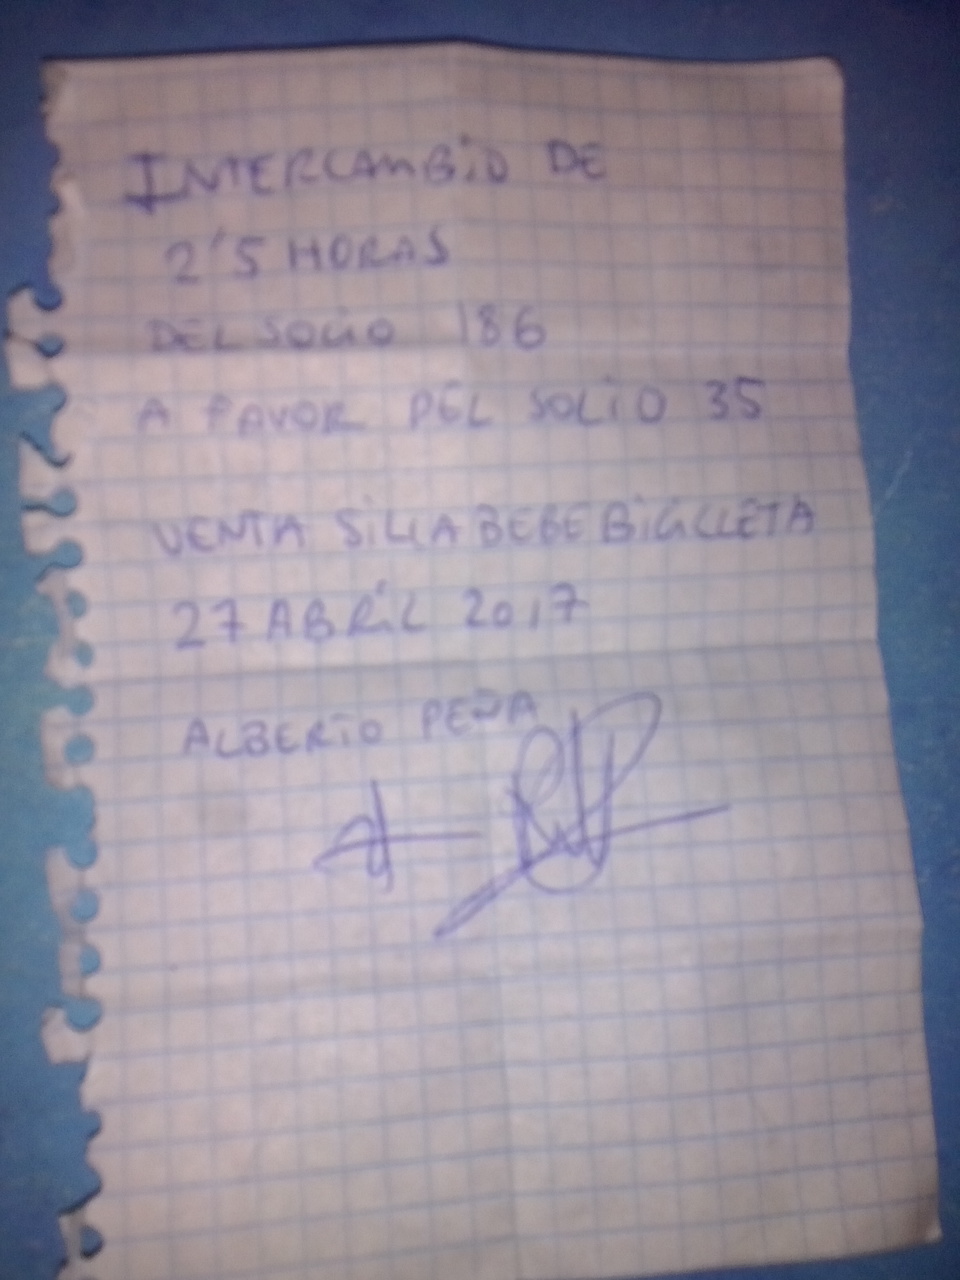 INTERCAMBIO DE
2'5 HORAS
DEL SOCIO 186
A FAVOR DEL SOCIO 35
VENTA SILLA BEBE BICICLETA
27 ABRIL 2017
ALBERTO PEÑA